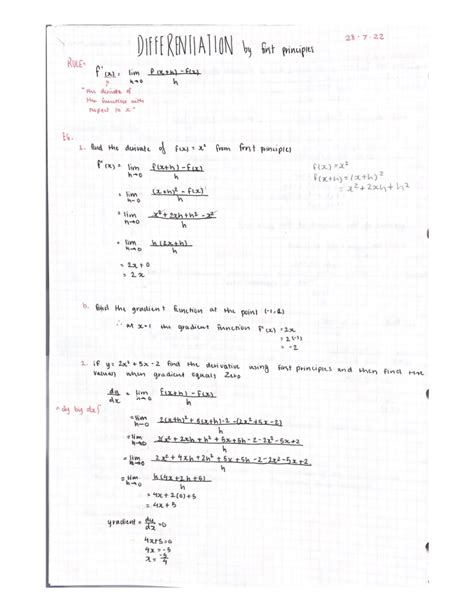 DIFFERENTIATION by first principles
28.7.22
RULE:
f'(x) = lim h→0 f(x+h) - f(x) / h
"the derivate of
the function with
respect to x"
Eg.
1. find the derivate of f(x) = x² from first principles
f'(x) = lim h→0 f(x+h) - f(x) / h
f(x) = x²
f(x+h) = (x+h)²
= x² + 2xh + h²
= lim h→0 (x+h)² - f(x) / h
= lim h→0 x² + 2xh + h² - x² / h
= lim h→0 h(2x+h) / h
= 2x + 0
= 2x
b. find the gradient function at the point (-1,
∴ at x=-1 the gradient function f'(x) = 2x
= 2(-1)
= -2
2. if y = 2x² + 5x - 2 find the derivative using first principles and then find the
values when gradient equals zero
dy/dx = lim h→0 f(x+h) - f(x) / h
^ dy by dx
= lim h→0 2(x+h)² + 5(x+h) - 2 - (2x² + 5x - 2) / h
= lim h→0 2(x² + 2xh + h² + 5x + 5h - 2 - 2x² - 5x + 2 / h
= lim h→0 2x² + 4xh + 2h² + 5x + 5h - 2 - 2x² - 5x + 2 / h
= lim h→0 h(4x + 2h + 5) / h
= 4x + 2(0) + 5
= 4x + 5
gradient = dy/dx = 0
4x+5=0
4x = -5
x = -5/4